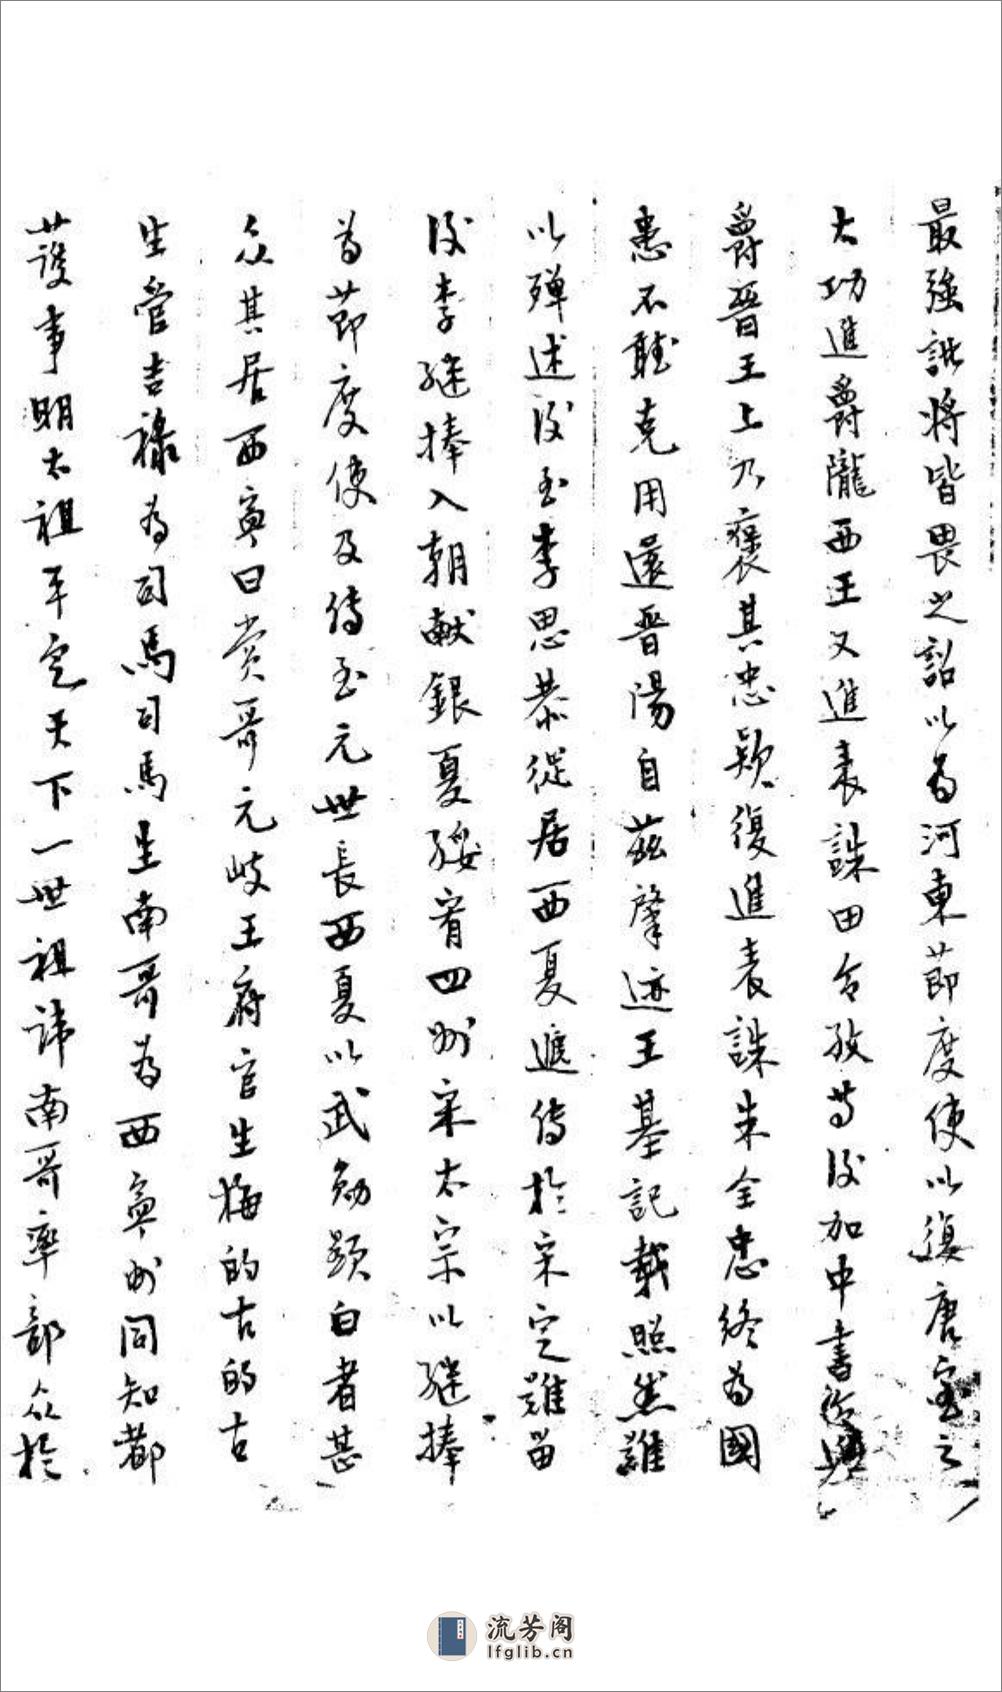 最強諸將皆畏之詔以為河東節度使以復唐室之
大功進爵隴西王又進表誅田令孜等後加中書
爵晉王上乃褒其忠款復進表誅朱全忠終為國
患不聽克用還晉陽自茲肇迹王基記載照然難
以殫述後至李思恭從居西夏遞傳於宋定難留
後李繼捧入朝獻銀夏綏宥四州宋太宗以繼捧
為節度使及傳至元世長西夏以武勉顯白者甚
众其居西寧曰賞哥元岐王府官生梅的古的古
生管吉祿為司馬司馬生南哥為西寧州同知都
護事明太祖平定天下一世祖諱南哥率部众於
流芳阁
lfglib.cn